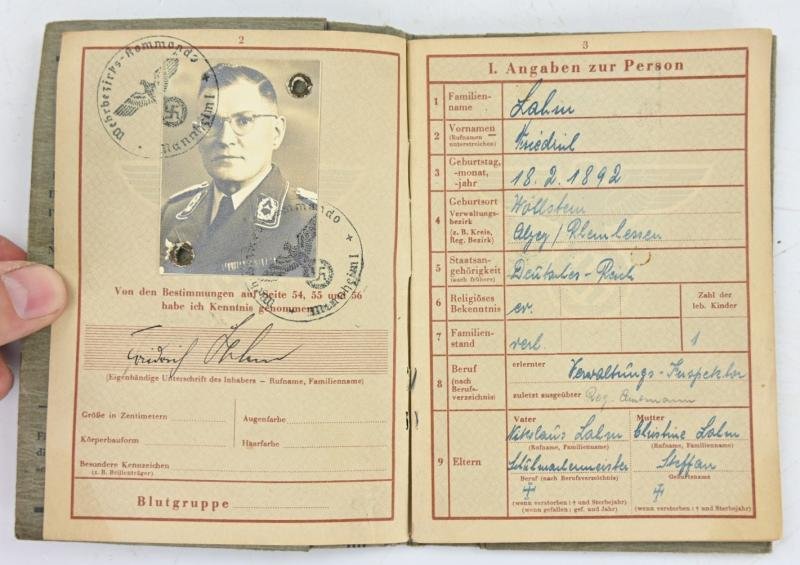 2
Wehrbezirks-Kommando
Mannheim I
Wehrbezirks-Kommando
Mannheim I
Von den Bestimmungen auf Seite 54, 55 und 56
habe ich Kenntnis genommen
Friedrich Lahm
(Eigenhändige Unterschrift des Inhabers – Rufname, Familienname)
Größe in Zentimetern
Augenfarbe
Körperbauform
Haarfarbe
Besondere Kennzeichen
(z. B. Brillenträger)
Blutgruppe
3
I. Angaben zur Person
1 Familien-
name
Lahm
2 Vornamen
(Rufnamen
unterstreichen)
Friedrich
3 Geburtstag,
-monat,
-jahr
18. 2. 1892
4 Geburtsort
Verwaltungs-
bezirk
(z. B. Kreis,
Reg. Bezirk)
Wöllstein
Alzey / Rheinhessen
5 Staatsan-
gehörigkeit
(auch frühere)
Deutsches-Reich
6 Religiöses
Bekenntnis
ev.
Zahl der
leb. Kinder
7 Familien-
stand
verh.
1
8 Beruf
(nach
Berufs-
verzeichnis)
erlernter
Verwaltungs-Inspektor
zuletzt ausgeübter
Reg. Amtmann
9 Eltern
Vater
Nikolaus Lahm
(Rufname, Familienname)
Schuhmachermeister
Beruf (nach Berufsverzeichnis)
(wenn verstorben: † und Sterbejahr)
(wenn gefallen: gef. und Jahr)
Mutter
Christine Lahm
(Rufname, Familienname)
Steffan
Geburtsname
(wenn verstorben: † und Sterbejahr)